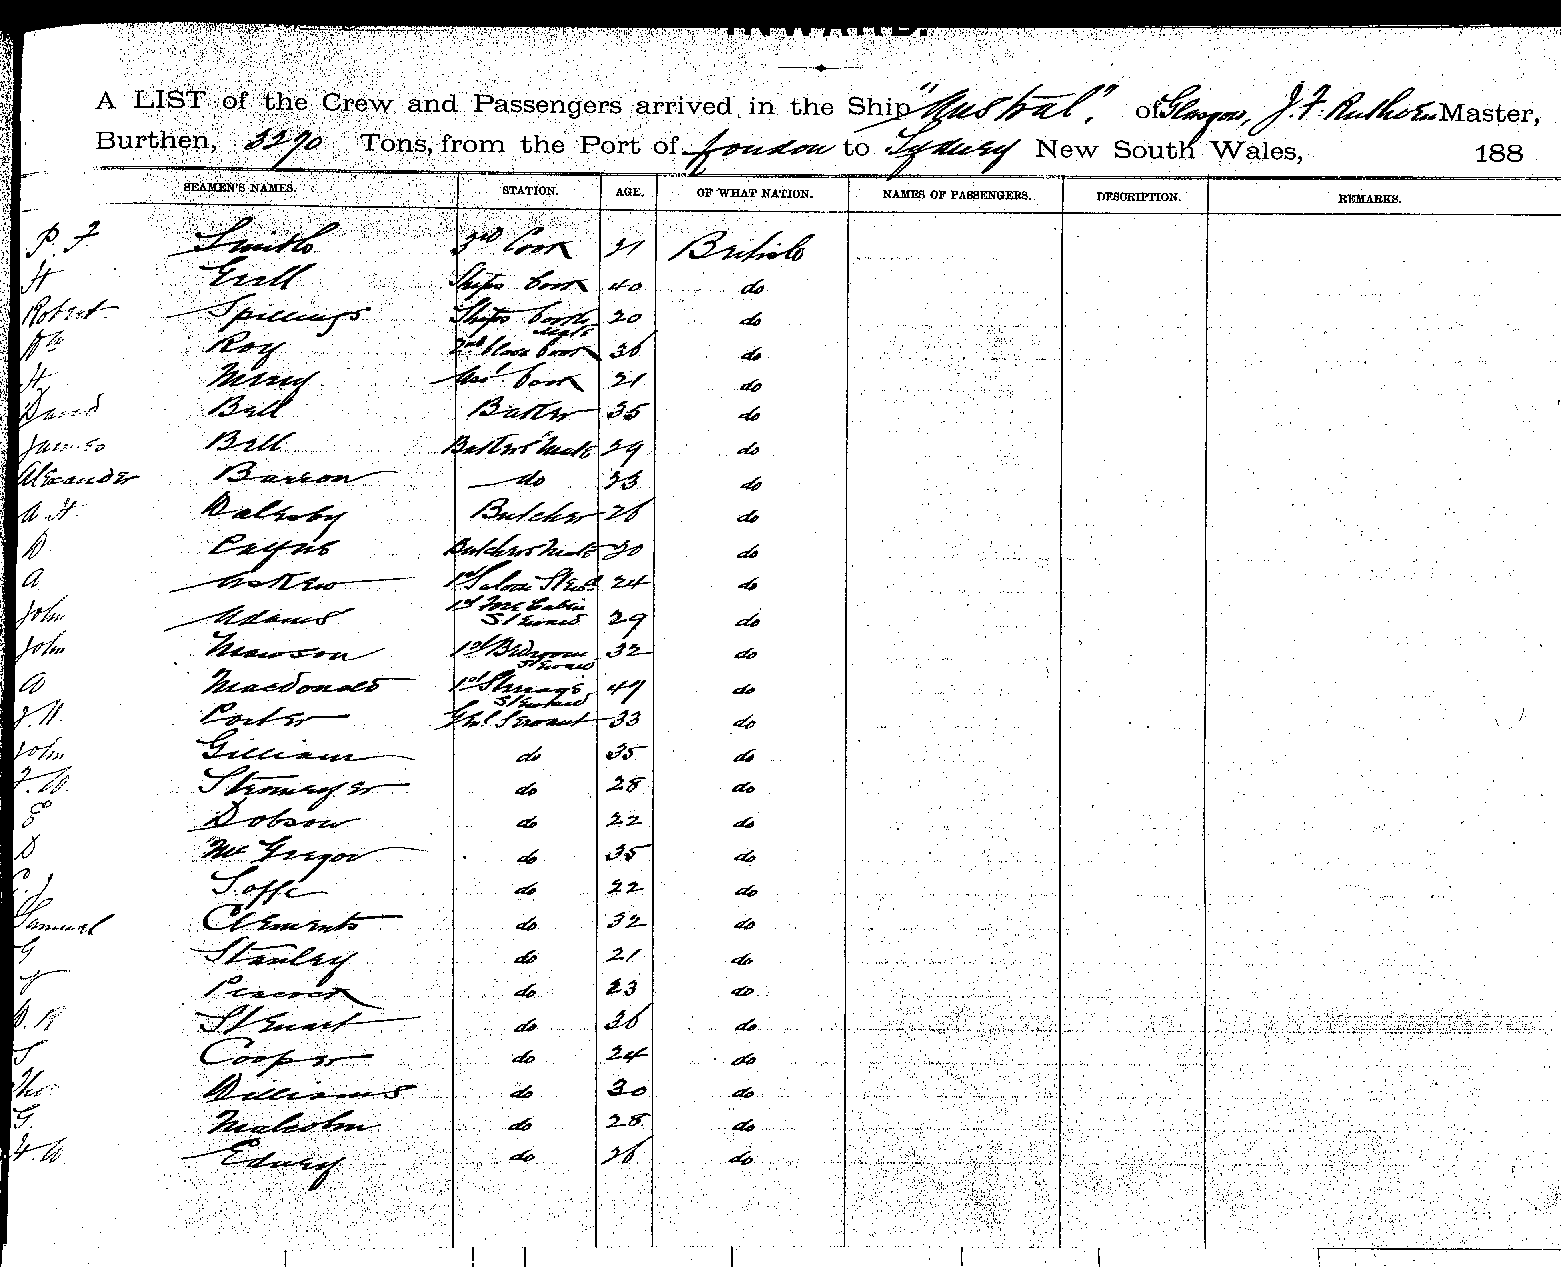 INWARD.
A LIST of the Crew and Passengers arrived in the Ship "Austral". of Glasgow, J. F. Ruthven Master,
Burthen, 3290 Tons, from the Port of London to Sydney New South Wales, 188
SEAMEN'S NAMES. STATION. AGE. OF WHAT NATION. NAMES OF PASSENGERS. DESCRIPTION. REMARKS.
P. F Smith 3rd Cook 21 British
H Grell Ships Cook 40 do
Robert Spillings Ships Cooks Mate 20 do
Wm Roy 2nd Class Cook 36 do
H Merry Cook 21 do
David Bell Baker 35 do
James Bell Bakers Mate 29 do
Alexander Barron do 23 do
A H Dalesby Butcher 26 do
D Payne Butchers Mate 20 do
A Askew 1st Saloon Stewd 24 do
John Adams 1st Fore Cabin Steward 29 do
John Mawson 1st Bedroom Steward 32 do
A Macdonald 1st Steerage Steward 49 do
J. H. Porter Genl Servant 33 do
John Gilliam do 35 do
F. W. Stromeyer do 28 do
E Dobson do 22 do
D McGregor do 35 do
C. J Soffe do 22 do
Samuel Clements do 32 do
G Stanley do 21 do
Peacock do 23 do
D. R Steuart do 36 do
S Cooper do 24 do
Thos Williams do 30 do
G. Malcolm do 28 do
W Edney do 26 do